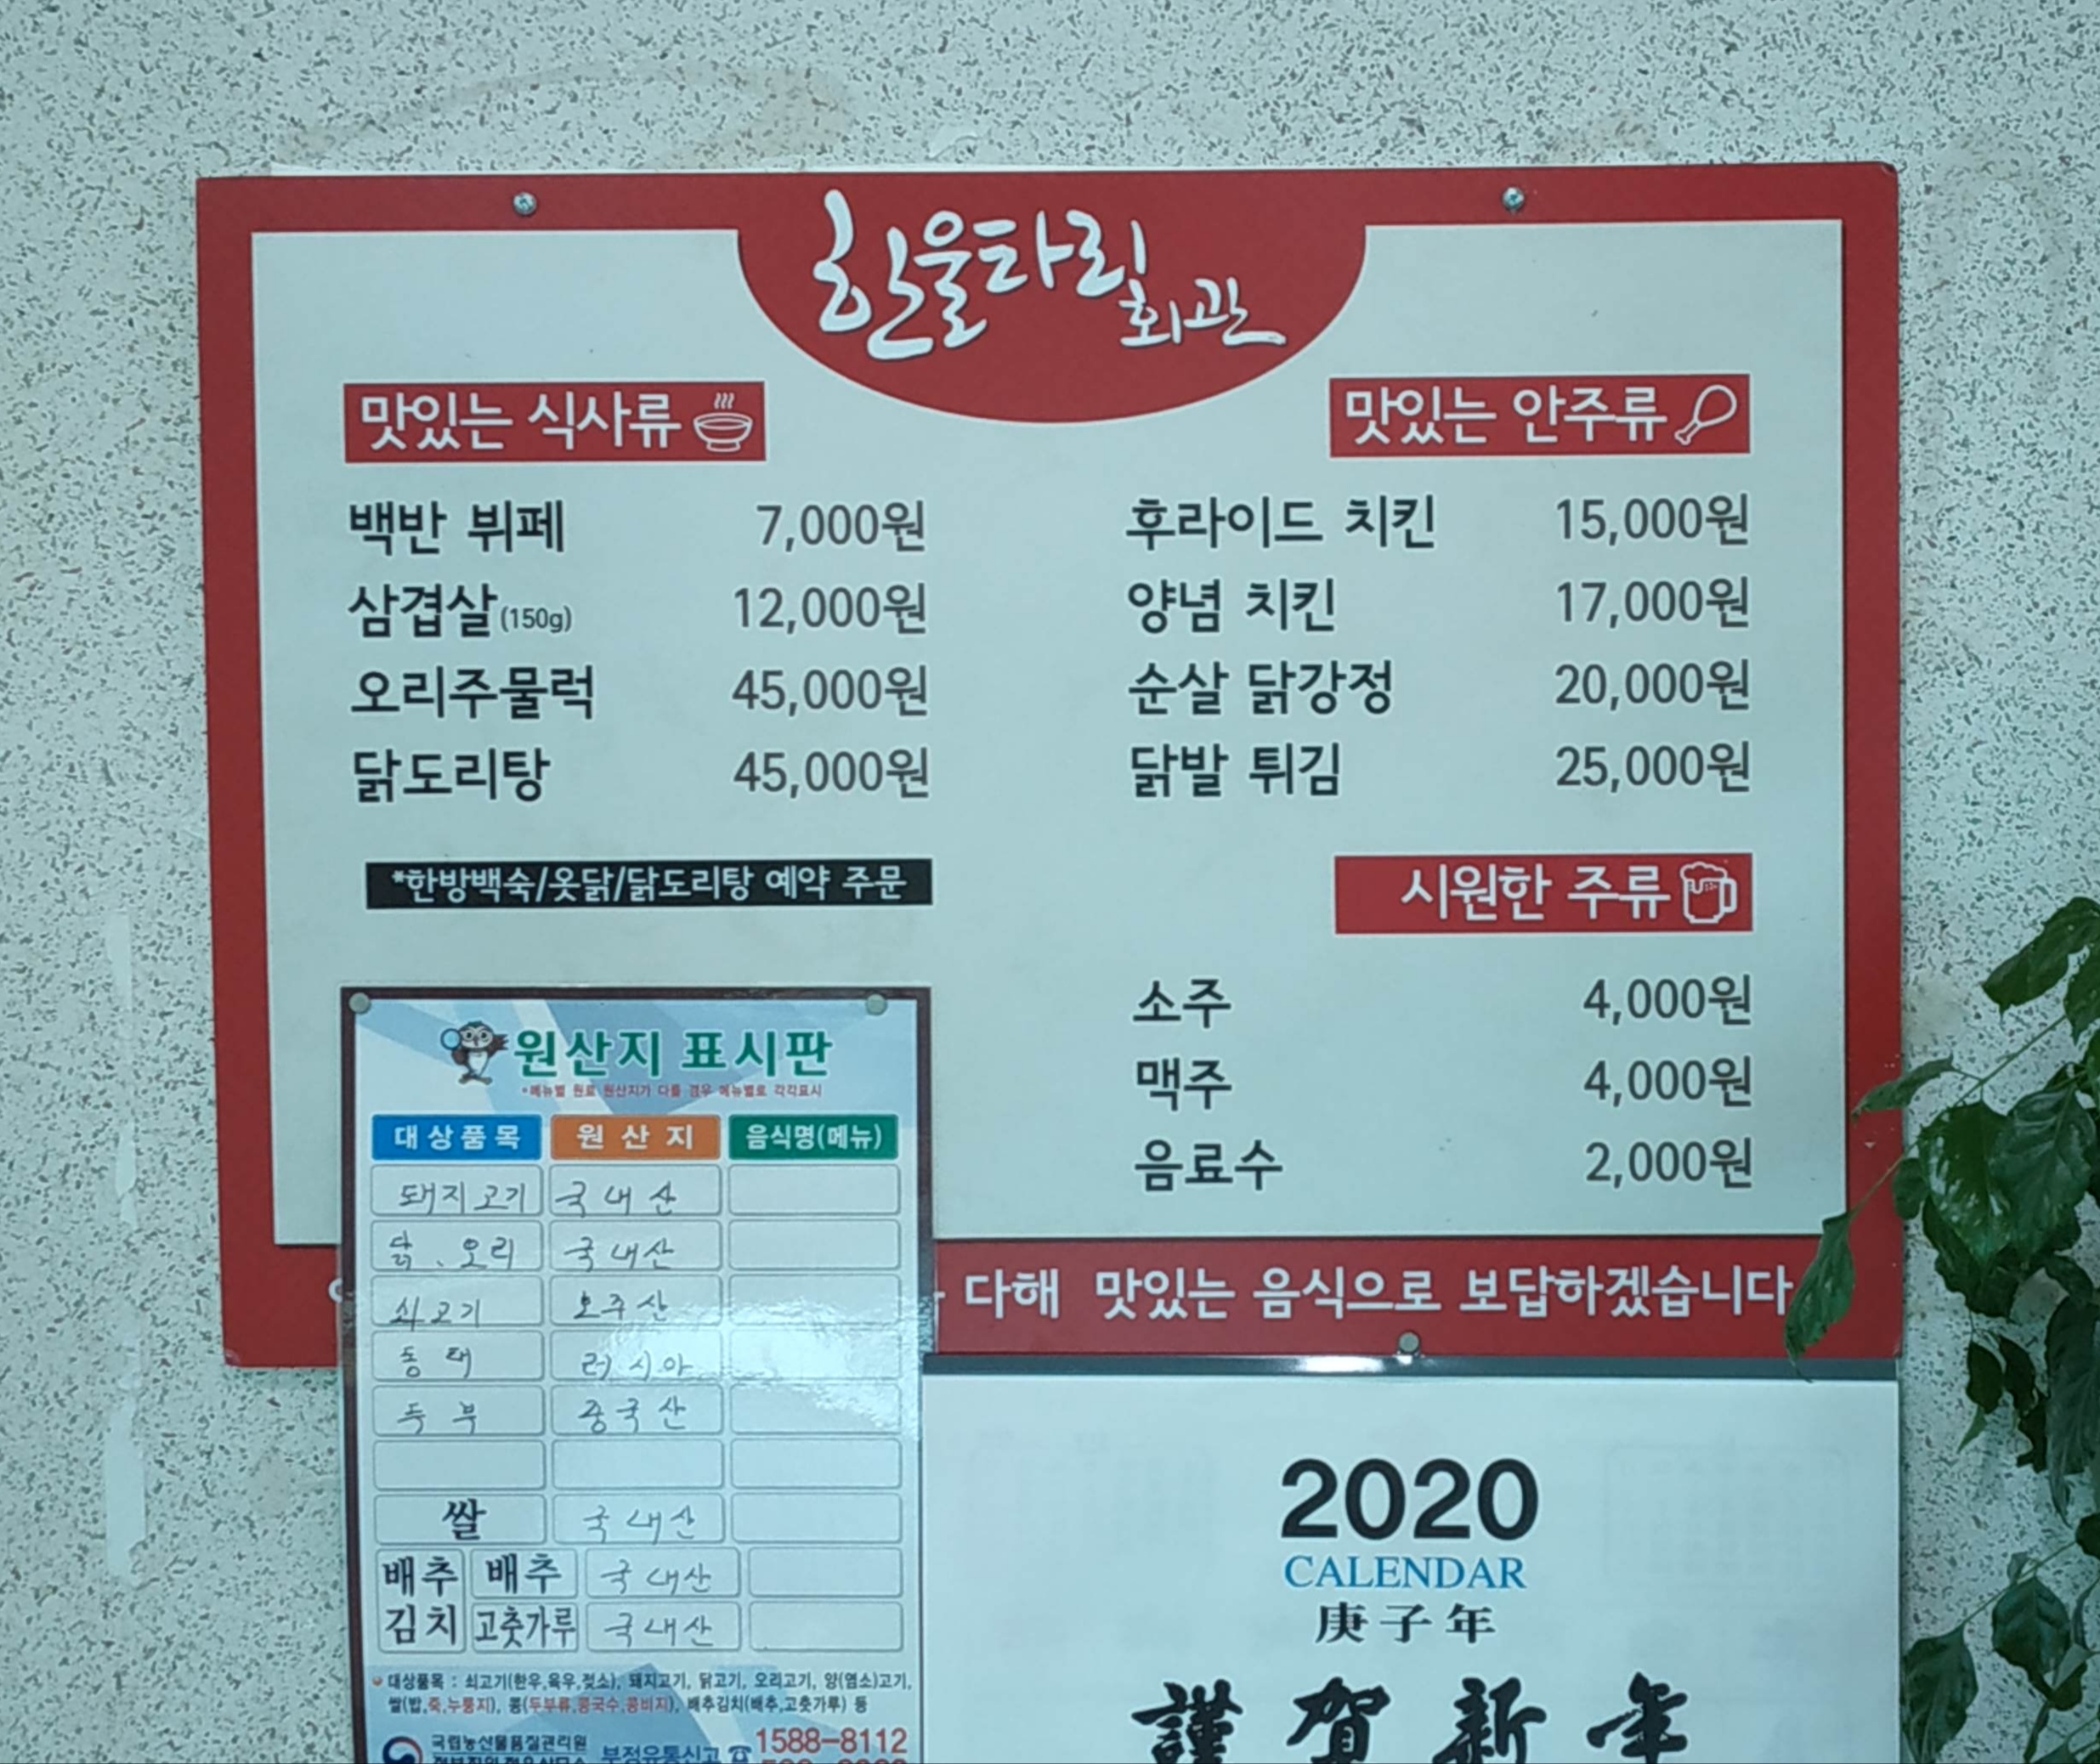 한울타리 회관
맛있는 식사류
백반 뷔페 7,000원
삼겹살(150g) 12,000원
오리주물럭 45,000원
닭도리탕 45,000원
*한방백숙/옻닭/닭도리탕 예약 주문
맛있는 안주류
후라이드 치킨 15,000원
양념 치킨 17,000원
순살 닭강정 20,000원
닭발 튀김 25,000원
시원한 주류
소주 4,000원
맥주 4,000원
음료수 2,000원
다해 맛있는 음식으로 보답하겠습니다
원산지 표시판
*메뉴별 원료 원산지가 다를 경우 메뉴별로 각각표시
대상품목 원산지 음식명(메뉴)
돼지고기 국내산
닭. 오리 국내산
쇠고기 호주산
동태 러시아
두부 중국산
쌀 국내산
배추 배추 국내산
김치 고춧가루 국내산
대상품목 : 쇠고기(한우,육우,젖소), 돼지고기, 닭고기, 오리고기, 양(염소)고기,
쌀(밥,죽,누룽지), 콩(두부류,콩국수,콩비지), 배추김치(배추,고춧가루) 등
국립농산물품질관리원
부정유통신고 ☎ 1588-8112
2020
CALENDAR
庚子年
謹賀新年